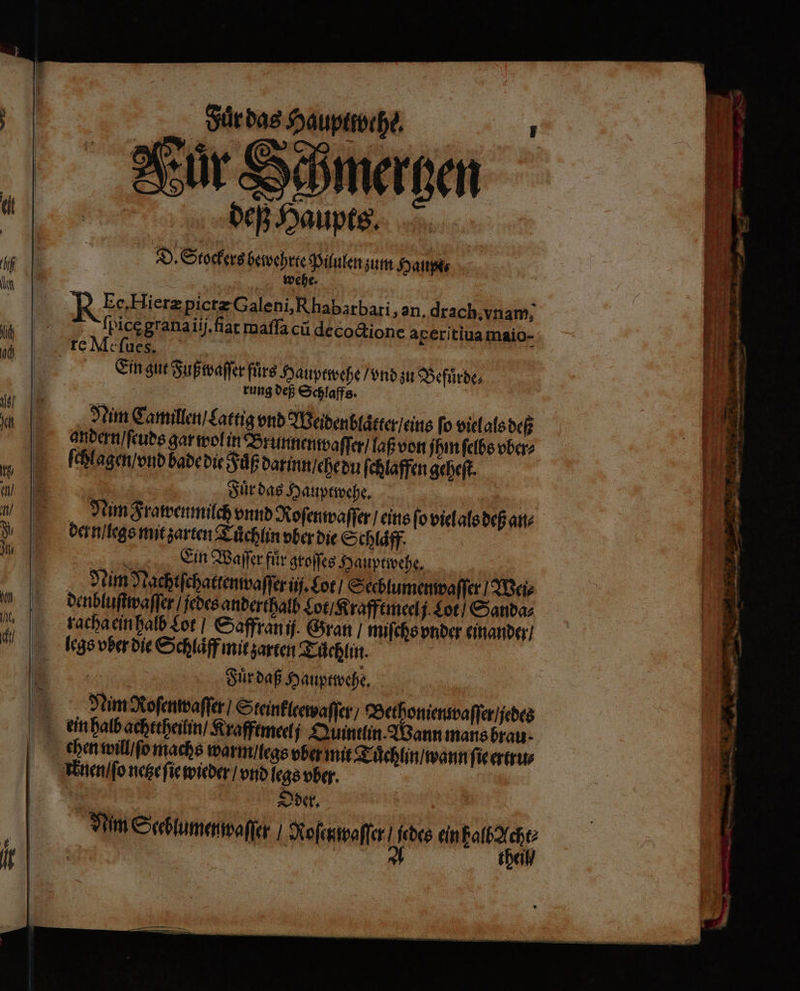 Fuͤr das Hauptwehe. 1
Fuͤr Schmertzen
deß Haupts.
D. Stockers bewehrte Pilulen zum Haupt⸗
wehe.
REc. Hieræ pictæ Galeni, Rhabarbari, an. drach. vnam,
ſpice grana iij. fiat maſſa cũ decoctione aperitiua maio-
re Meſues.
Ein gut Fußwaſſer fuͤrs Hauptwehe / vnd zu Befuͤrde⸗
rung deß Schlaffs.
Nim Camillen / Lattig vnd Weidenblaͤtter / eins ſo viel als deß
andern / ſeuds gar wol in Brunnenwaſſer / laß von jhm ſelbs vber⸗
ſchlagen / vnd bade die Fuͤß darinn / ehe du ſchlaffen geheſt.
Fuͤr das Hauptwehe.
Nim Frawenmilch vnnd Roſenwaſſer / eins ſo viel als deß an⸗
dern / legs mit zarten Tuͤchlin vber die Schlaͤff.
Ein Waſſer fuͤr groſſes Hauptwehe.
Nim Nachtſchattenwaſſer iij. Lot / Seeblumenwaſſer / Wei⸗
denbluſtwaſſer / jedes anderthalb Lot / Krafftmeel j. Lot / Sanda⸗
racha ein halb Lot / Saffran ij. Gran / miſchs vnder einander /
legs vber die Schlaͤff mit zarten Tuͤchlin.
Fuͤr daß Hauptwehe.
Nim Roſenwaſſer / Steinkleewaſſer / Bethonienwaſſer / jedes
ein halb achttheilin / Krafftmeel j Quintlin. Wann mans brau⸗
chen will / ſo machs warm / legs vber mit Tuͤchlin / wann ſie ertru⸗
cknen / ſo netze ſie wieder / vnd legs vber.
Oder.
Nim Seeblumenwaſſer / Roſenwaſſer / jedes ein halb Acht⸗
A theil /